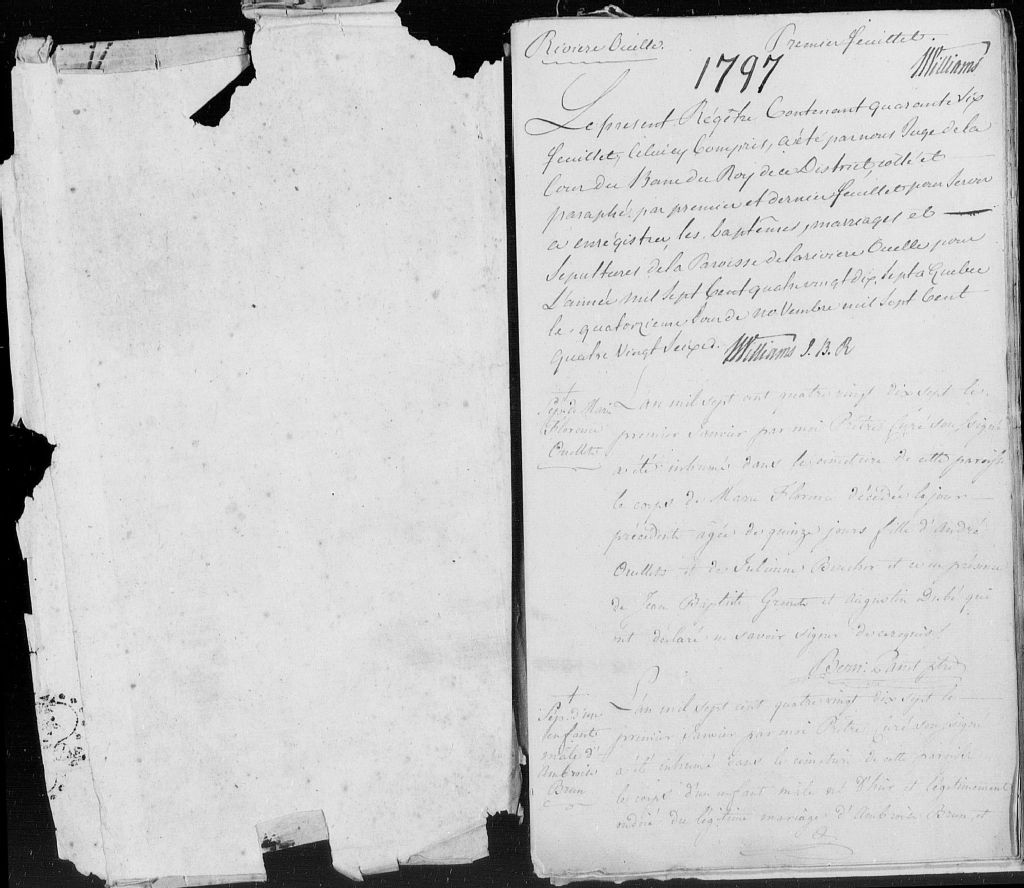 Riviere Ouelle. Premier feuillet.
1797 Williams
Le present Régître Contenant quarante six
feuillet, Celuicy Compris, a été par nous Juge de la
Cour du Banc du Roy de ce District, cotté et
paraphé, par premier et dernier feuillet, pour Servir
a enrégistrer, les, baptêmes, marriages et
Sepultures de la Paroisse de la riviere Ouelle pour
L'année mil Sept Cent quatre vingt dix, Sept a Quebec
le, quatorzieme Jour de novembre mil Sept Cent
quatre Vingt Seize. Williams J. B. R
Sep. de Marie
Florence
Ouellet
L'an mil sept cent quatre vingt dix sept le
premier Janvier par moi Prêtre Curé soussigné
a été inhumé dans le cimetiere de cette paroisse
le corps de Marie Florence décédée le jour
précédente agée de quinze jours fille d'André
Ouellets et de Julienne Boucher et ce en présence
de Jean Baptiste et Augustin Dubé qui
ont déclaré ne savoir signer de ce requis.
Bern. Panet ptre
Sep. d'un
enfant
mâle d'
Ambroise
Brun
L'an mil sept cent quatre vingt dix sept le
premier Janvier par moi Prêtre Curé soussigné
a été inhumé dans le cimetiere de cette paroisse
le corps d'un enfant mâle né d'hier et légitimement
ondoié du légitime mariage d'Ambroise Brun et